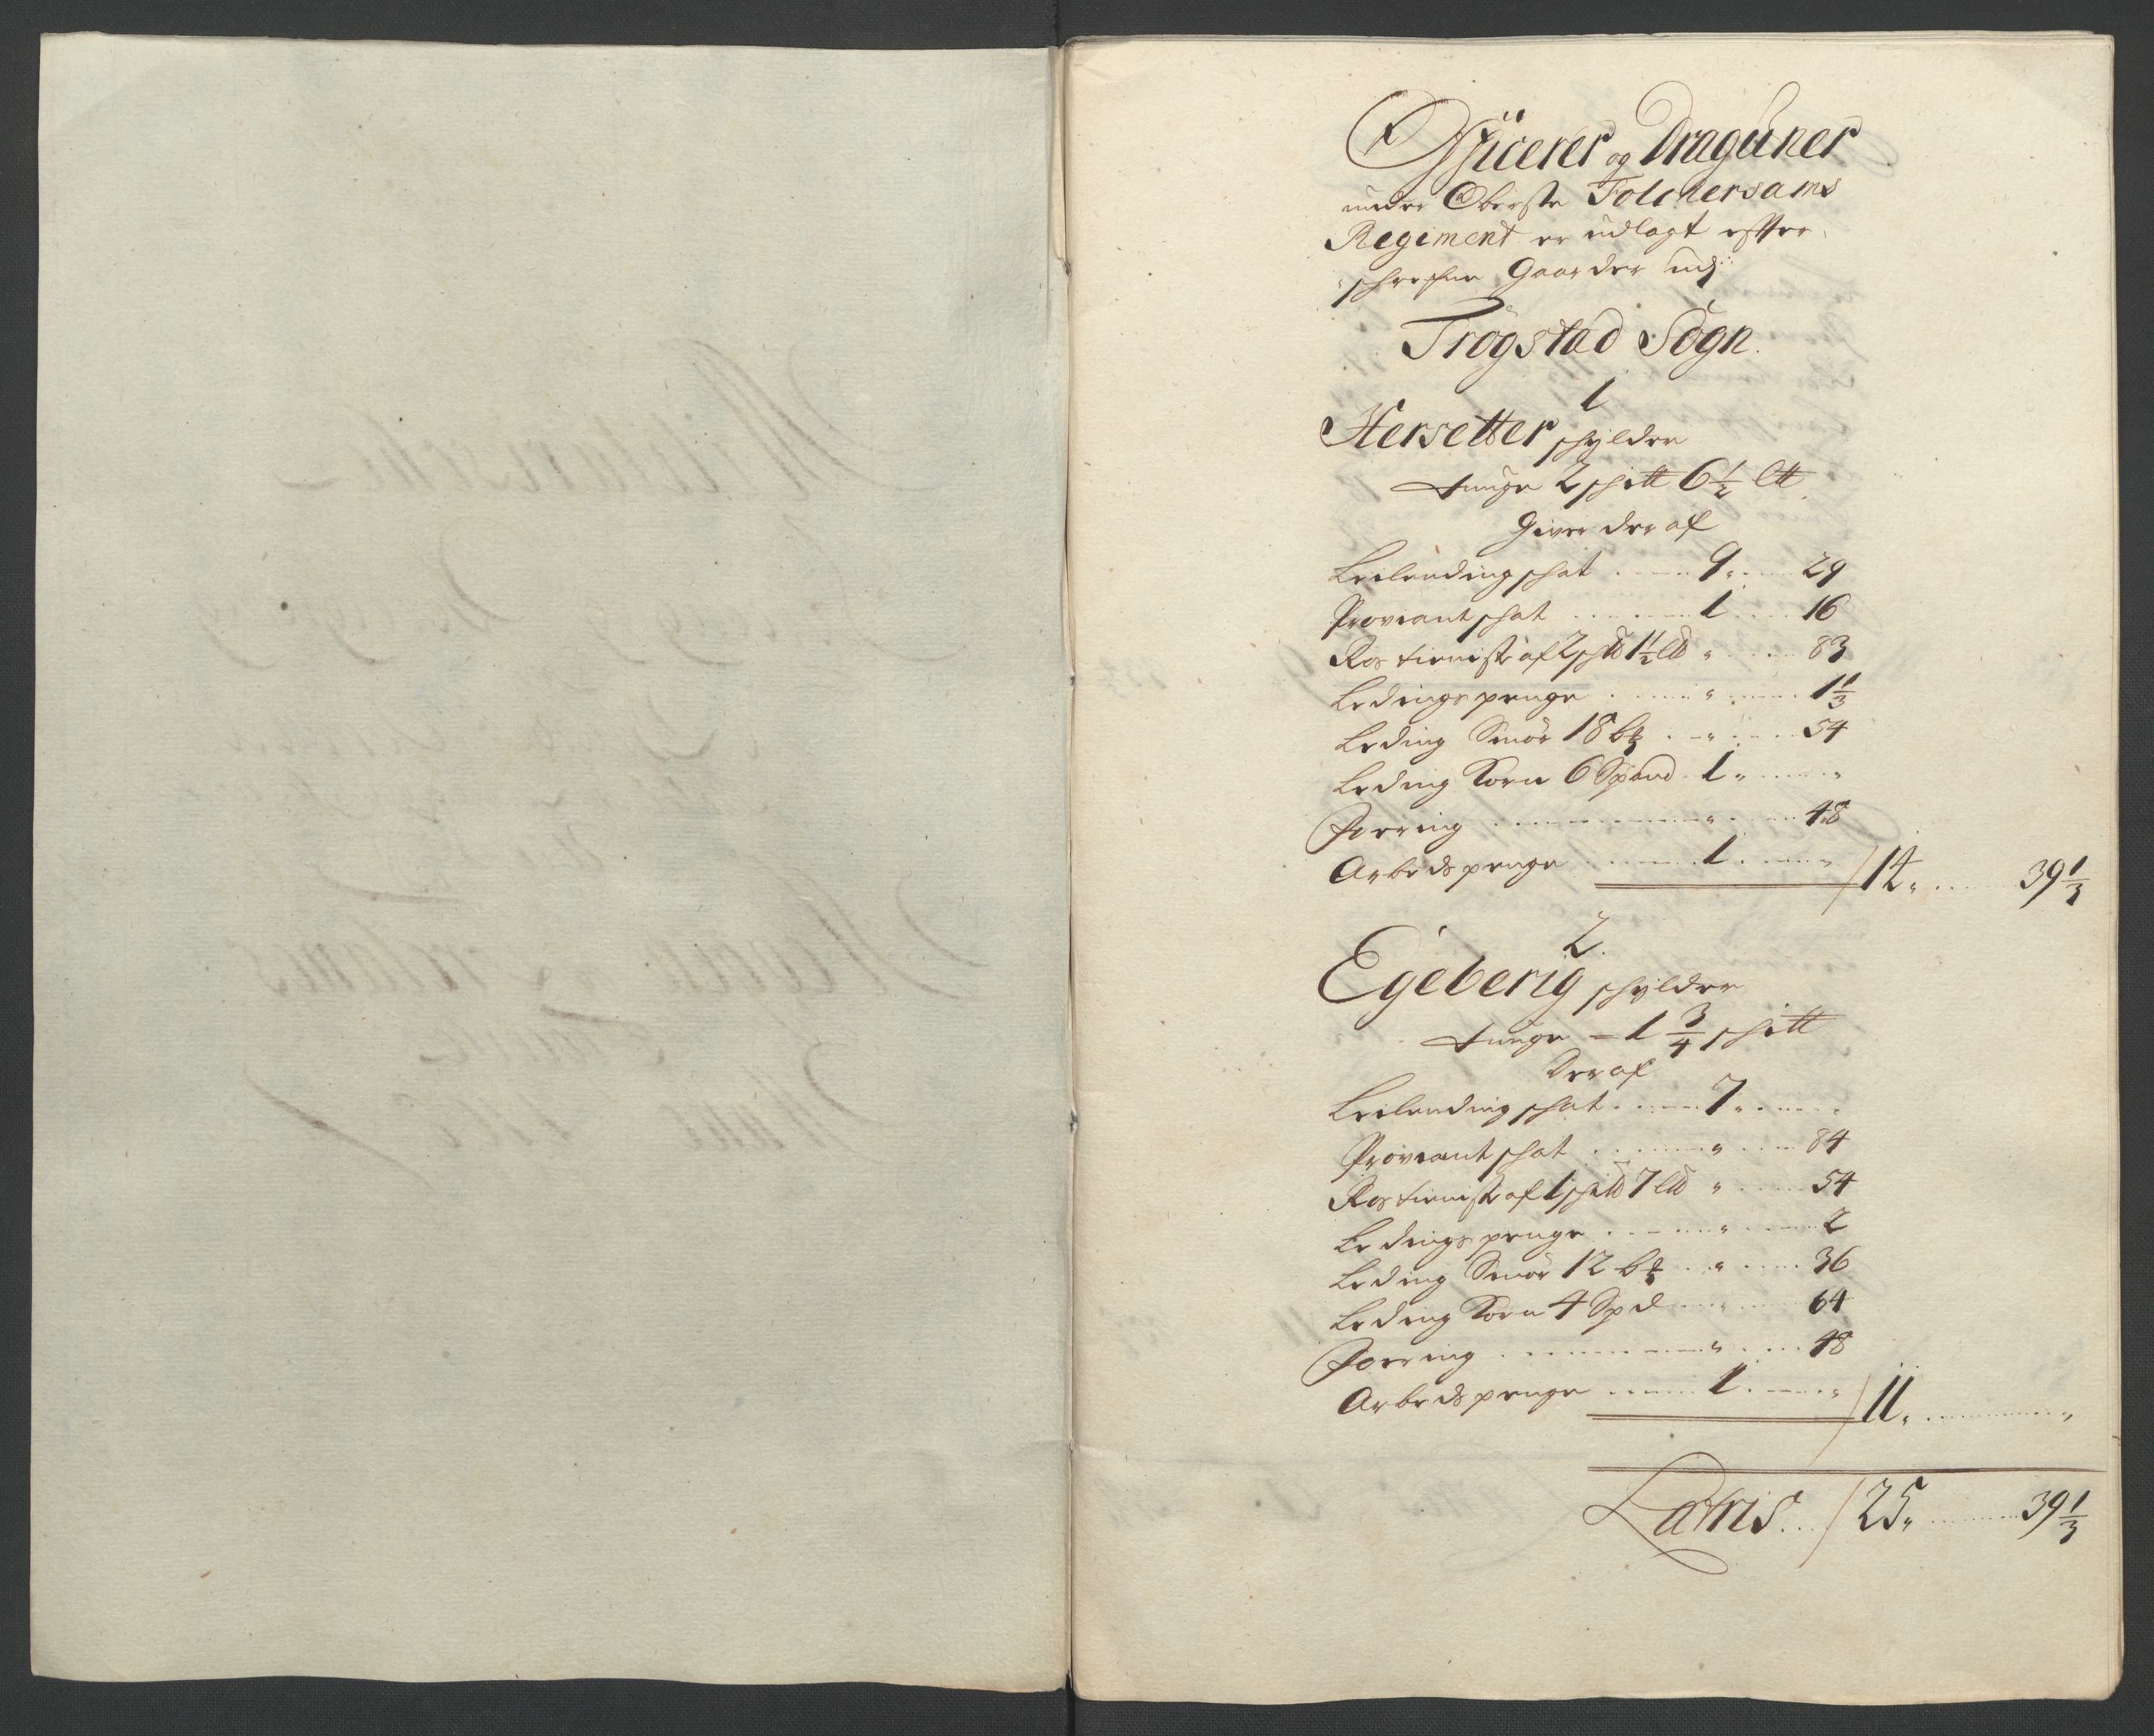 Officerer og Dragüner
under Oberste Folchersams
Regiment er udlagt effter
schrefne Gaarder udj
Trögstad Sogn.
1
Hersetter schylder
tunge 2 schitt 6 1/2 ltt
Giver der af
Leilending schat 9 29
Proviant schat 1 16
Ros tieniste af 2 schlld 1 1/2 lld " 83
Ledings penge " 1 1/3
Leding Smör 18 b " 54
Leding Korn 6 Spand 1 "
Foering " 48
Arbeds penge 1 " / 14 " 39 1/3
2.
Egeberig schylder
tunge - 1 3/4 schitt
Der af
Leilending schat 7 "
Proviant schat " 84
Ros tieniste af 1 schlld 7 lld " 54
Ledings penge " 2
Leding Smör 12 b " 36
Leding Korn 4 Spd " 64
Foering " 48
Arbeds penge 1 " / 11 " "
Latris / 25 " 39 1/3